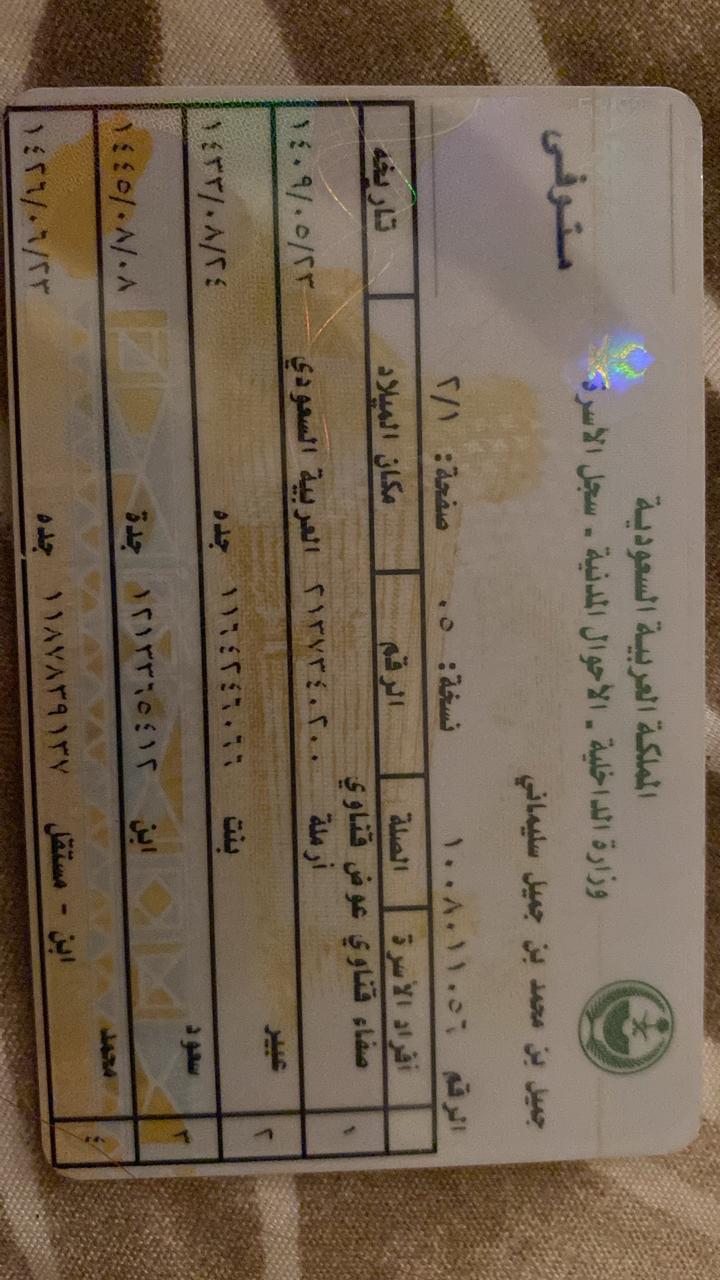 المملكة العربية السعودية
وزارة الداخلية - الأحوال المدنية - سجل الأسرة
متوفى
جميل بن محمد بن جميل سليماني
الرقم ١٠٠٨٠١١٠٥٦ نسخة: ٠٥ صفحة: ٢/١
أفراد الأسرة الصلة الرقم مكان الميلاد تاريخه
١ صفاء قناوي عوض قناوي أرملة ٢١٣٧٣٤٠٢٠٠ العربية السعودي ١٤٠٩/٠٥/٢٣
٢ عبير بنت جده ١٤٣٣/٠٨/٢٤
٣ سعود ابن جدة ١٤٤٥/٠٨/٠٨
٤ محمد ابن - مستقل ١١٨٧٨٣٩١٣٧ جده